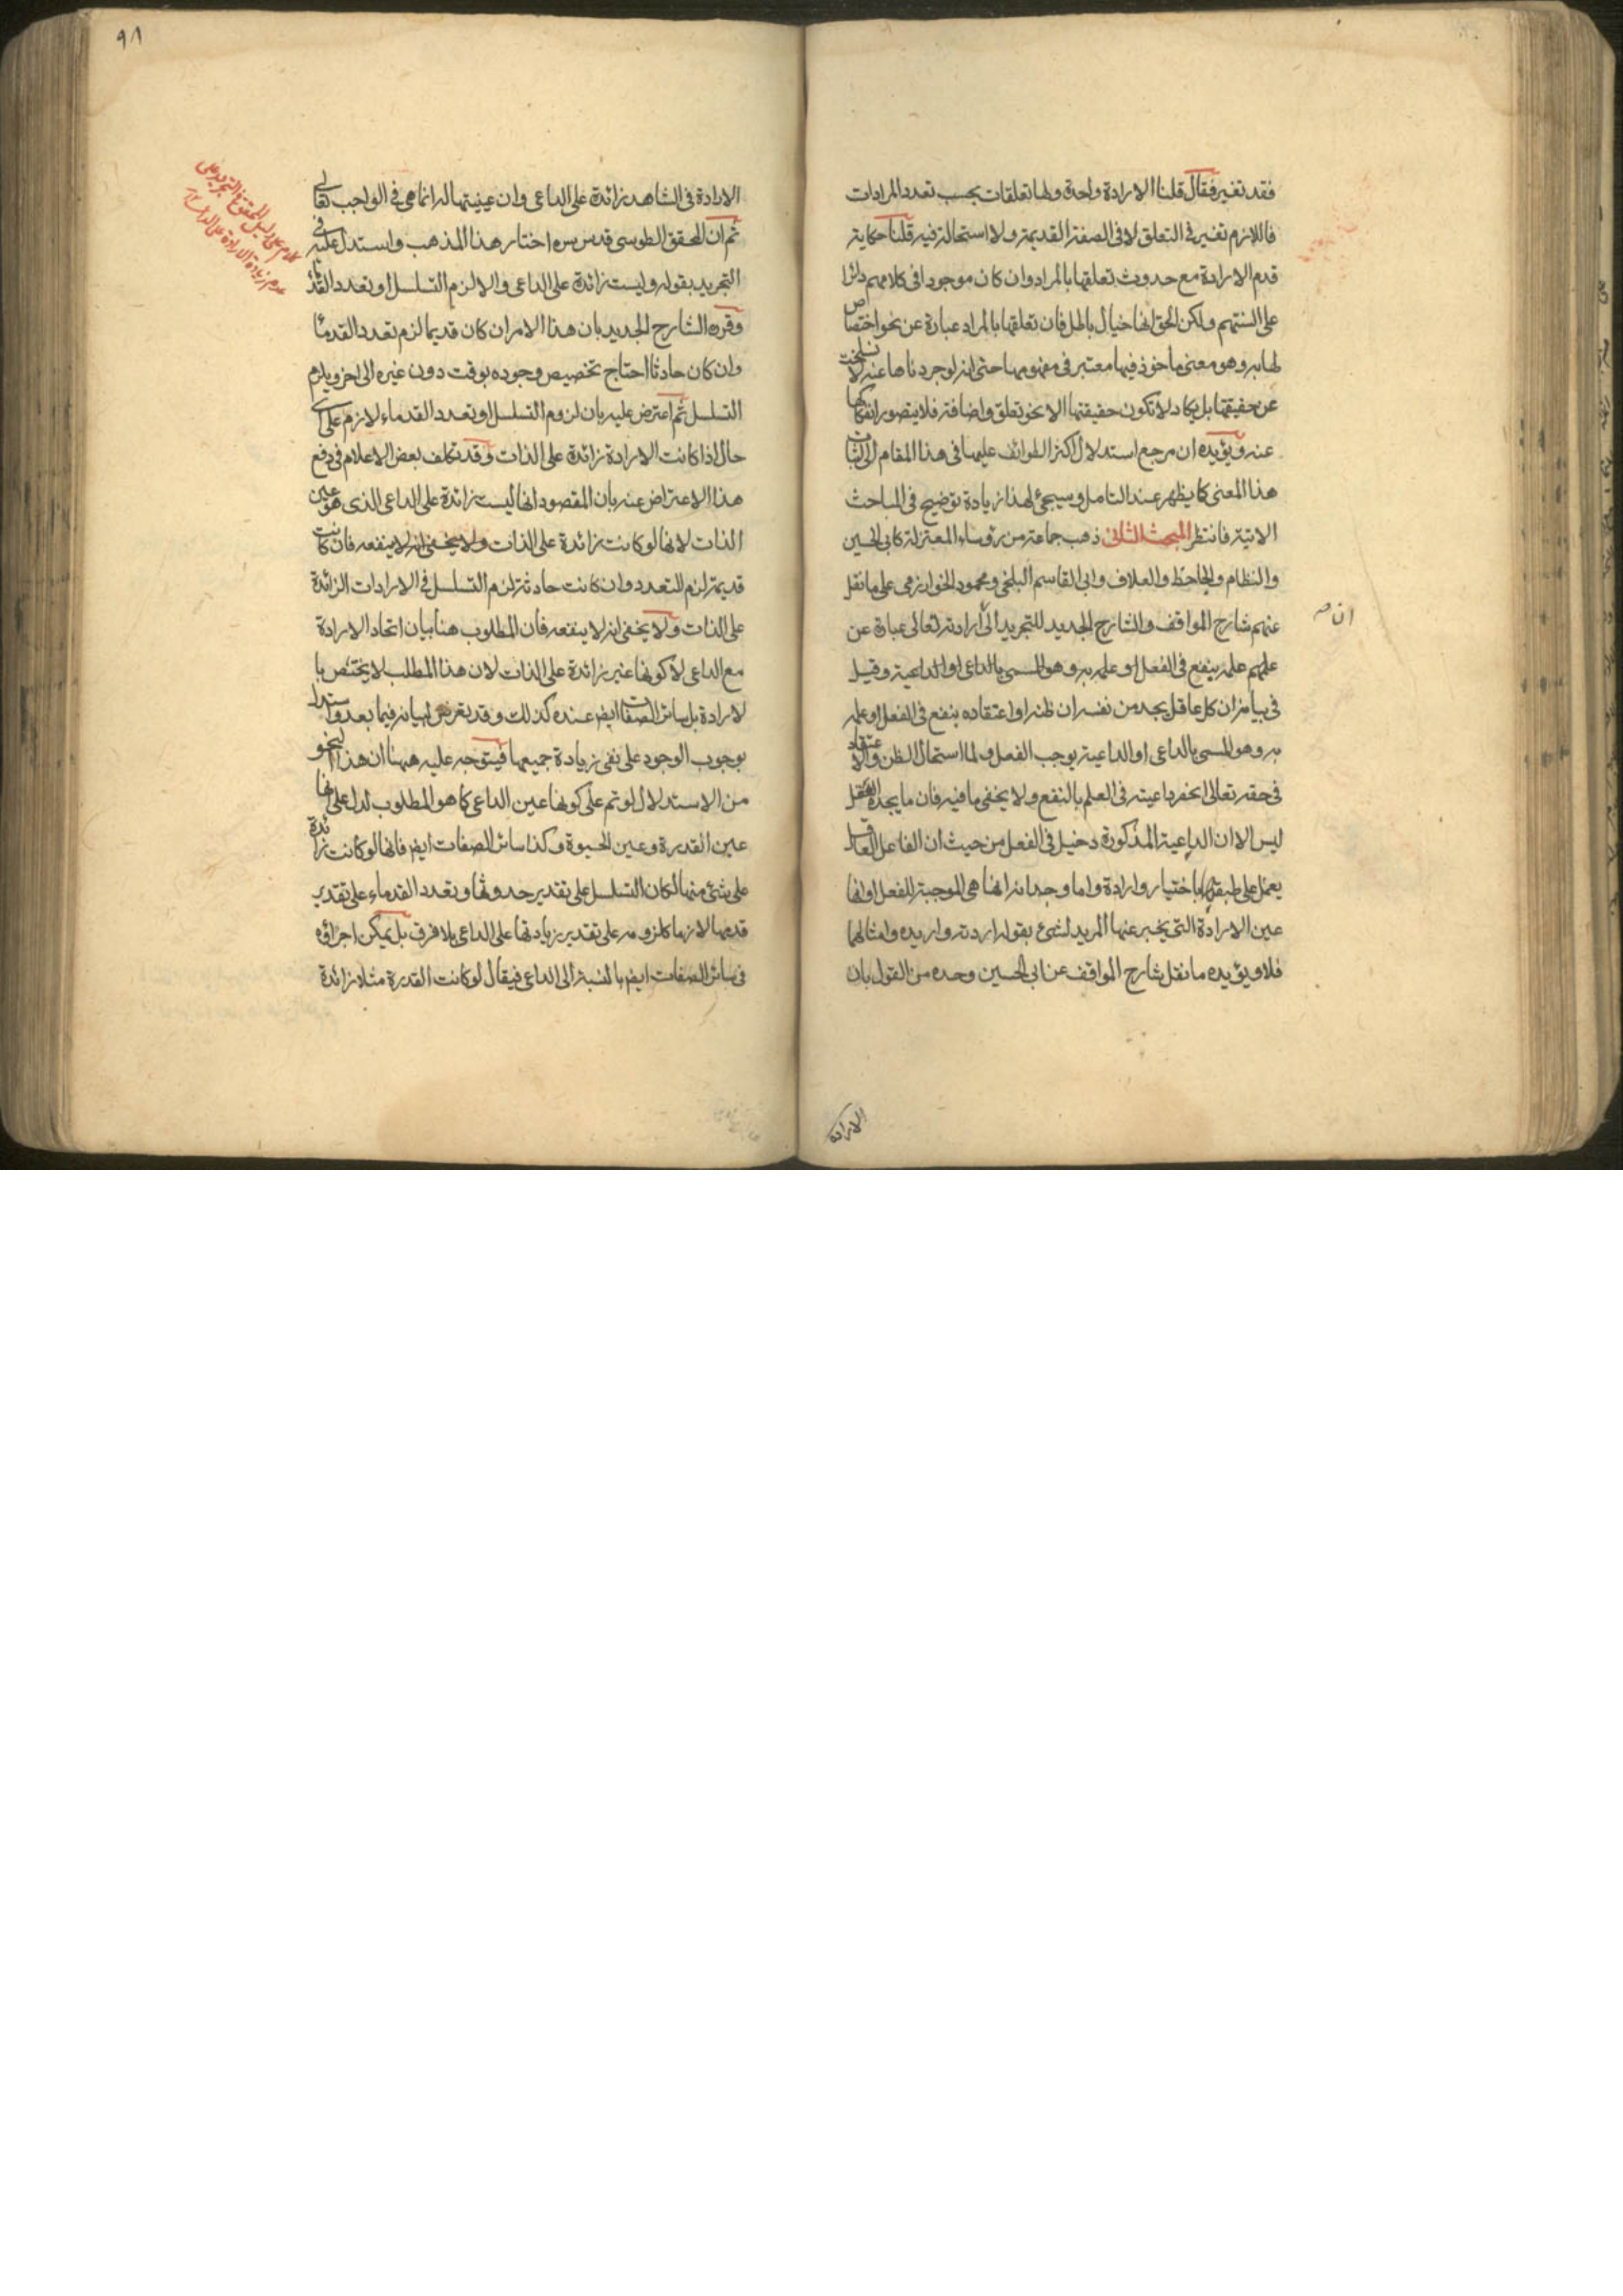 فقد تغير فقال قلنا الارادة واحدة ولها تعلقات بحسب تعدد المرادات
فاللازم تغير في التعلق لا في الصفة القديمة ولا استحالة فيه قلنا حكاية
قدم الارادة مع حدوث تعلقها بالمراد وان كان موجودا في كلامهم دائرا
على السنتهم ولكن الحق انها خيال باطل فان تعلقها بالمراد عبارة عن نحو اختصاص
لها به وهو معنى ماخوذ فيها معتبر في مفهومها حتى انه لو جردناها عنه لانسلخت
عن حقيقتها بل يكاد لا تكون حقيقتها الا نحو تعلق واضافة فلا يتصور انفكاكها
عنه ويؤيده ان مرجع استدلال اكثر الطوائف عليها في هذا المقام الى اثبات
هذا المعنى كما يظهر عند التامل وسيجئ لهذا زيادة توضيح في المباحث
الاتية فانتظر المبحث الثاني ذهب جماعة من رؤساء المعتزلة كابي الحسين
والنظام والجاحظ والعلاف وابي القاسم البلخي ومحمود الخوارزمي على ما نقل
عنهم شارح المواقف والشارح الجديد للتجريد الى ارادته تعالى عبارة عن
ان صح
علمه ينفع في الفعل او علمه به وهو المسمى بالداعي او الداعية وقيل
في بيانه ان كل عاقل يجد من نفسه ان ظنه او اعتقاده بنفع في الفعل او علمه
به وهو المسمى بالداعي او الداعية يوجب الفعل ولما استحال الظن والاعتقاد
في حقه تعالى انحصر داعيته في العلم بالنفع ولا يخفى ما فيه فان ما يجده العقل
ليس الا ان الداعية المذكورة دخيل في الفعل من حيث ان الفاعل العاقل
يعمل على طبقها باختيار وارادة واما وجدانه انها هي الموجبة للفعل او انها
عين الارادة التي يخبر عنها المريد لشئ بقوله اردته واريده وامثالهما
فلا ويؤيده ما نقل شارح المواقف عن ابي الحسين وحده من القول بان
الارادة
٩٨
الارادة في الشاهد زائدة على الداعي وان عينيتها له انما هي في الواجب تعالى
ثم ان المحقق الطوسي قدس سره اختار هذا المذهب واستدل عليه في
التجريد بقوله وليست زائدة على الداعي والا لزم التسلسل او تعدد القدماء
وقرره الشارح الجديد بان هذا الامر ان كان قديما لزم تعدد القدماء
وان كان حادثا احتاج تخصيص وجوده بوقت دون غيره الى اخر ويلزم
التسلسل ثم اعترض عليه بان لزوم التسلسل او تعدد القدماء لازم على اى
حال اذا كانت الارادة زائدة على الذات وقد تكلف بعض الاعلام في دفع
هذا الاعتراض عنه بان المقصود انها ليست زائدة على الداعي الذى هو عين
الذات لانها لو كانت زائدة على الذات ولا يخفى انه لا ينفعه فان كانت
قديمة لزم التعدد وان كانت حادثة لزم التسلسل في الارادات الزائدة
على الذات ولا يخفى انه لا ينفعه فان المطلوب هنا بيان اتحاد الارادة
مع الداعي لا كونها غير زائدة على الذات لان هذا المطلب لا يختص با
لارادة بل سائر الصفات ايضا عنده كذلك وقد تعرض لبيانه فيما بعد واستدل
بوجوب الوجود على نفي زيادة جميعها فيتوجه عليه ههنا ان هذا النحو
من الاستدلال لو تم على كونها عين الداعي كما هو المطلوب لدل على انها
عين القدرة وعين الحيوة وكذا سائر الصفات ايضا فانها لو كانت زائدة
على شئ منها لكان التسلسل على تقدير حدوثها وتعدد القدماء على تقدير
قدمها لازما كلزومه على تقدير زيادتها على الداعي بلا فرق بل يمكن اجراؤه
في سائر الصفات ايضا بالنسبة الى الداعي فيقال لو كانت القدرة مثلا زائدة
كلام على دليل المحقق في التجريد على
عدم زيادة الارادة على الداعي